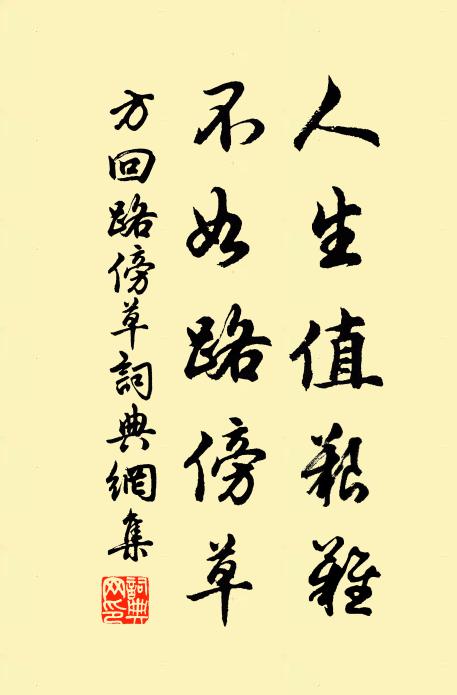 人生值艱難
不如路傍草
方回路傍草詞典網集
詞典网印